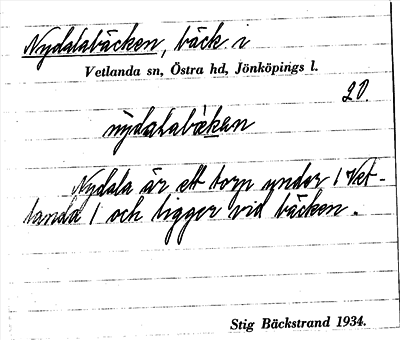 Nydalabäcken, bäck i
Vetlanda sn, Östra hd, Jönköpings l.
20.
nydalabäken
Nydala är ett torp under 1 Vet-
landa 1 och ligger vid bäcken.
Stig Bäckstrand 1934.